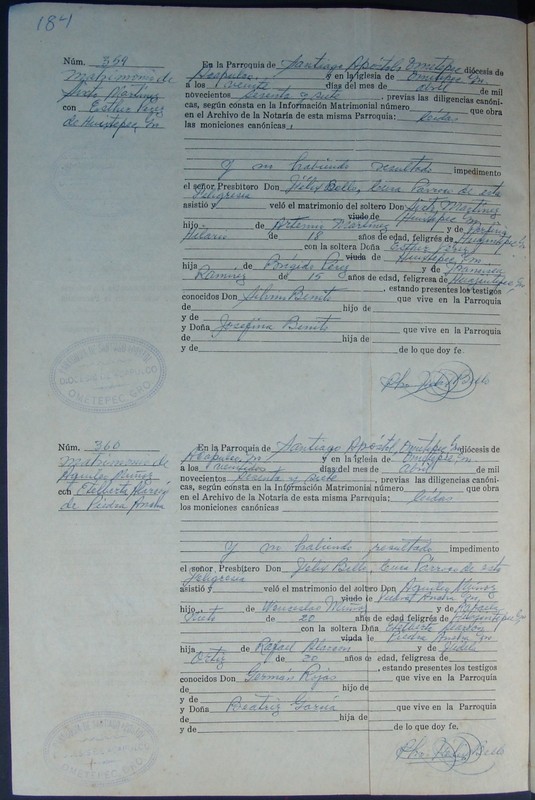 184
Núm. 359
Matrimonio de
Sixto Martínez
con Esther Pérez
de Huixtepec, Gro.
En la Parroquia de Santiago Apostol, Ometepec diócesis de
Acapulco, y en la iglesia de Ometepec Gro.
a los días del mes de abril de mil
novecientos sesenta y siete, previas las diligencias canóni-
cas, según consta en la Información Matrimonial número que obra
en el Archivo de la Notaría de esta misma Parroquia: leídas
las moniciones canónicas
Y no habiendo resultado impedimento
el señor Presbítero Don Félix Bello, Cura Párroco de esta
feligresía
asistió y veló el matrimonio del soltero Don Sixto Martínez
viudo de Huixtepec Gro
hijo de Artemio Martínez y de
Hilario de 18 años de edad, feligrés de Huixtepec Gro
con la soltera Doña Esther Pérez
viuda de Huixtepec, Gro
hija de Brígido Pérez y de
Ramírez de 15 años de edad, feligresa de Huixtepec, Gro
, estando presentes los testigos
conocidos Don Benito que vive en la Parroquia
de hijo de
y de
y Doña Josefina Benito que vive en la Parroquia
de hija de
y de de lo que doy fe.
Pbro. Félix Bello
DIOCESIS DE ACAPULCO
OMETEPEC, GRO.
Núm. 360
Matrimonio de
Muñoz
con
de Piedra Ancha
En la Parroquia de Santiago Apostol, Ometepec Gro diócesis de
Acapulco, Gro y en la iglesia de Ometepec Gro
a los días del mes de abril de mil
novecientos sesenta y siete, previas las diligencias canóni-
cas, según consta en la Información Matrimonial número que obra
en el Archivo de la Notaría de esta misma Parroquia: leídas
los moniciones canónicas
Y no habiendo resultado impedimento
el señor Presbítero Don Félix Bello, Cura Párroco de esta
feligresía
asistió y veló el matrimonio del soltero Don Muñoz
viudo de Ancha Gro
hijo de Wenceslao Muñoz y de
de 20 años de edad feligrés de Gro
con la soltera Dña Alarcón
viuda de Piedra Ancha Gro
hija de Rafael Alarcón y de
Ortiz de 20 años de edad, feligresa de
, estando presentes los testigos
conocidos Don Germán Rojas que vive en la Parroquia
de hijo de
y de
y Doña Beatriz García que vive en la Parroquia
de hija de
y de de lo que doy fe,
Pbro. Félix Bello
OMETEPEC, GRO.